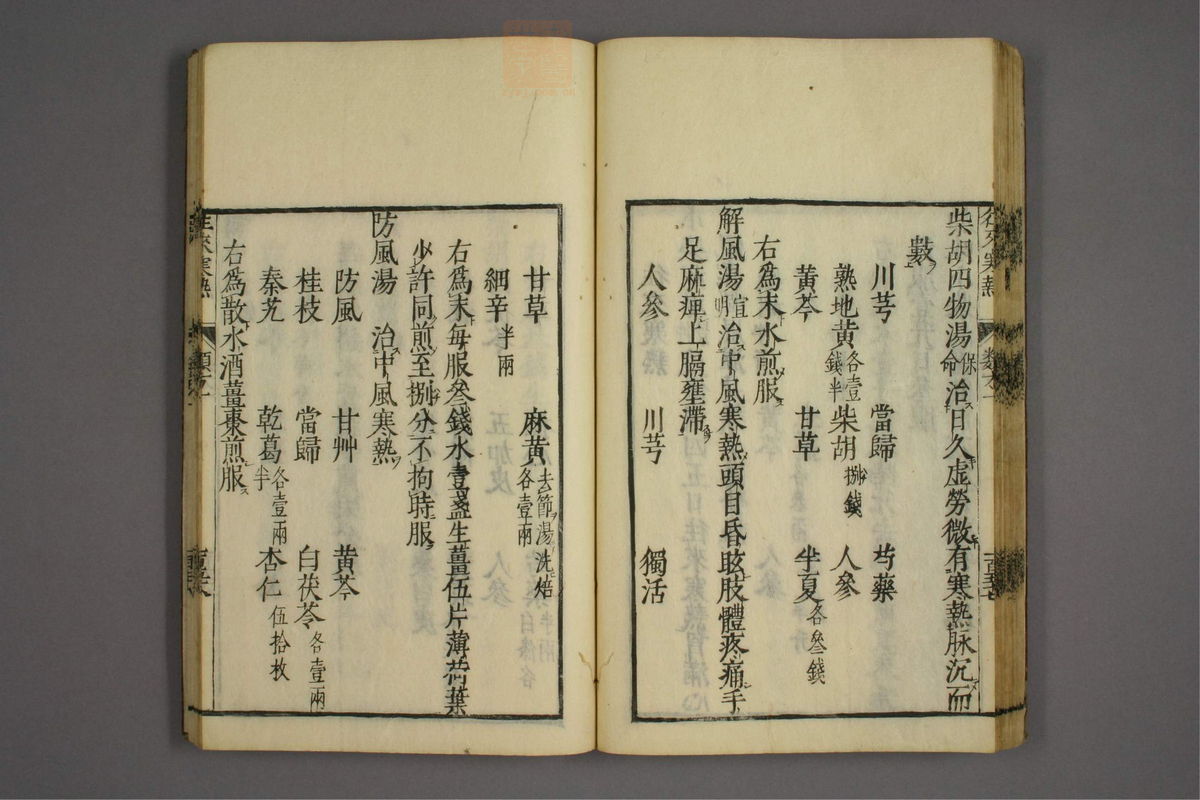 柴胡四物湯保命治日久虛勞微有寒熱脉沉而
數
川芎 當歸 芍藥
熟地黄各壹錢半 柴胡捌錢 人參
黄芩 甘草 半夏各參錢
右爲末水煎服
解風湯宣明治中風寒熱頭目昏眩肢體疼痛手
足麻痺上膈壅滯
人參 川芎 獨活
甘草 麻黄去節湯洗焙各壹兩
細辛半兩
右爲末每服參錢水壹盞生薑伍片薄荷葉
少許同煎至捌分不拘時服
防風湯 治中風寒熱
防風 甘艸 黄芩
桂枝 當歸 白茯苓各壹兩
秦艽 乾葛各壹兩半 杏仁伍拾枚
右爲散水酒薑棗煎服